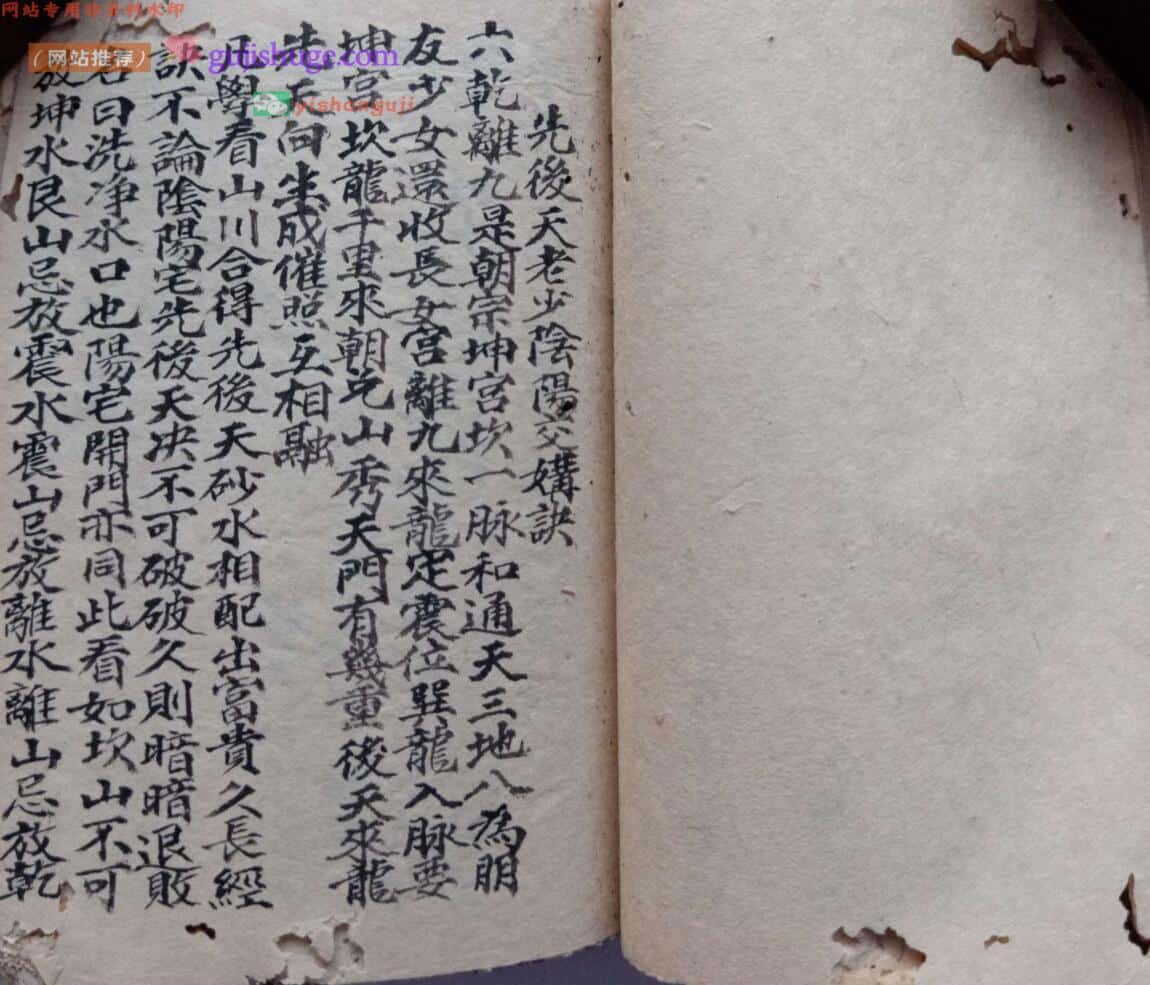 网站专用
水印
(网站推荐)
gujishuge.com
yishanguji
先後天老少陰陽交媾訣
六乾離九是朝宗坤宮坎一脉和通天三地八為朋
友少女還收長女宮離九來龍定震位巽龍入脉要
坤宮坎龍千里來朝乞山秀天門有幾重後天來龍
先天向生成催照互相融
凡學看山川合得先後天砂水相配出富貴久長經
訣不論陰陽宅先後天决不可破破久則暗暗退敗
名曰洗净水口也陽宅開門亦同此看如坎山不可
放坤水艮山忌放震水震山忌放離水離山忌放乾